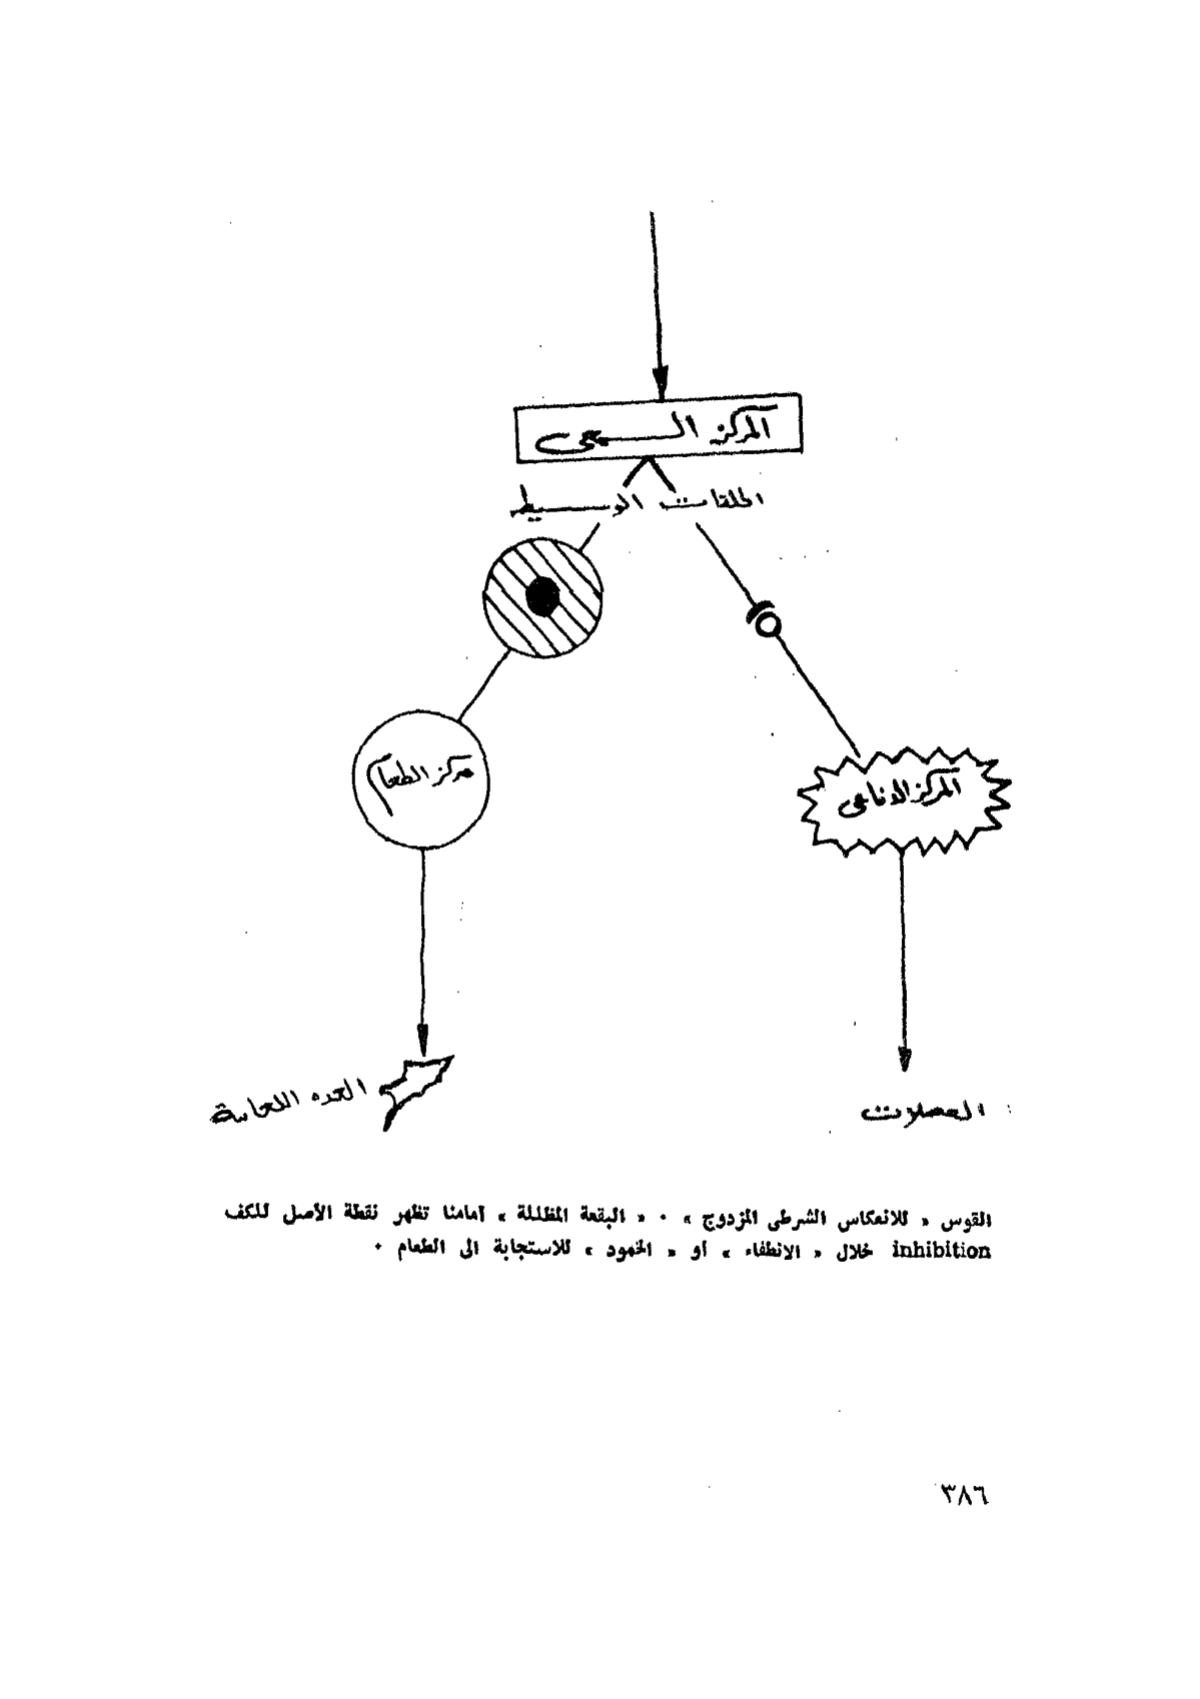 المركز السمعى
الحلقات الوسيطة
مركز الطعام
المركز الدفاعى
الغدد اللعابية
العضلات
القوس « للانعكاس الشرطى المزدوج » ٠ « البقعة المظللة » أمامنا تظهر نقطة الأصل للكف
inhibition خلال « الانطفاء » أو « الخمود » للاستجابة الى الطعام ٠
٣٨٦